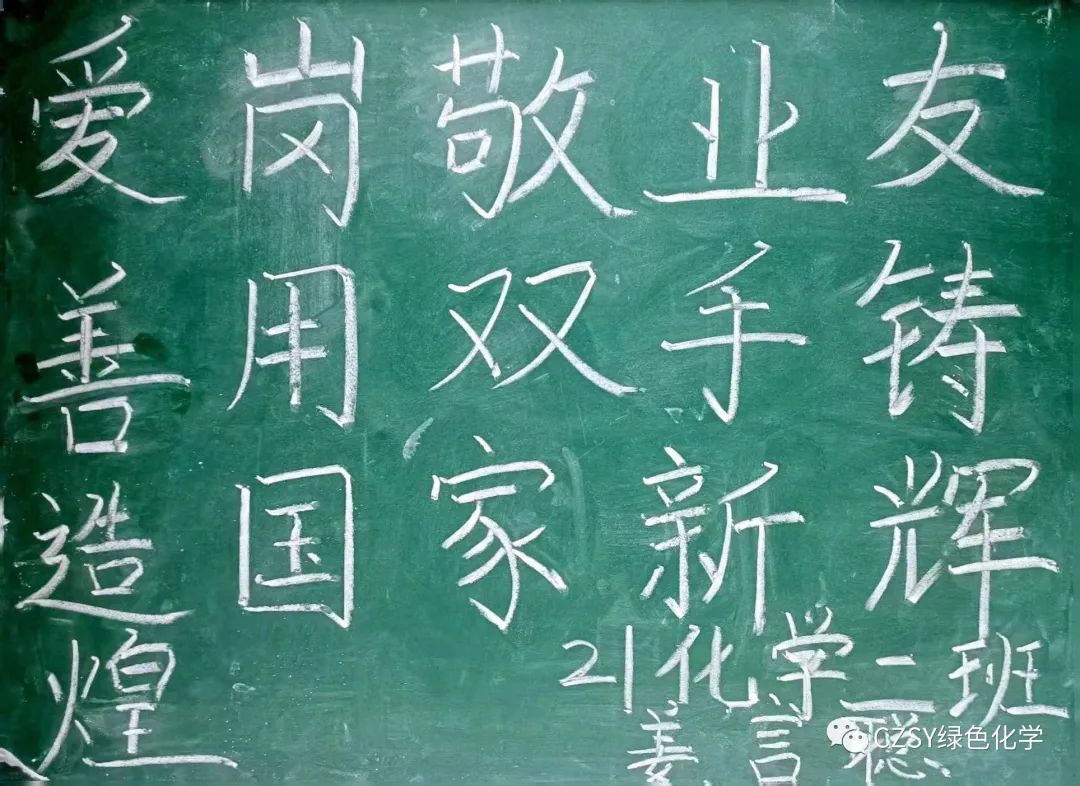 爱岗敬业友
善用双手铸
造国家新辉
煌
21化学二班
姜言聪
CZSY绿色化学